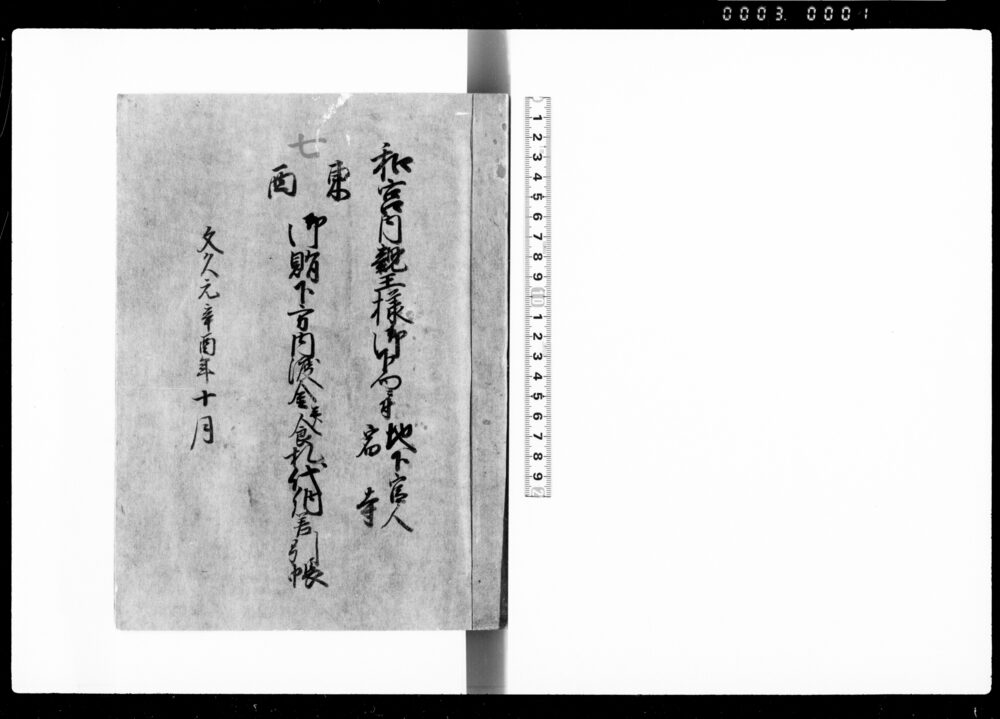 0003. 0001
和宮内親王様御下向ニ付地下官人
宿寺
東
西
七
御賄下方内渡金并食札代納差引帳
文久元辛酉年十月
1 2 3 4 5 6 7 8 9 10 1 2 3 4 5 6 7 8 9 2